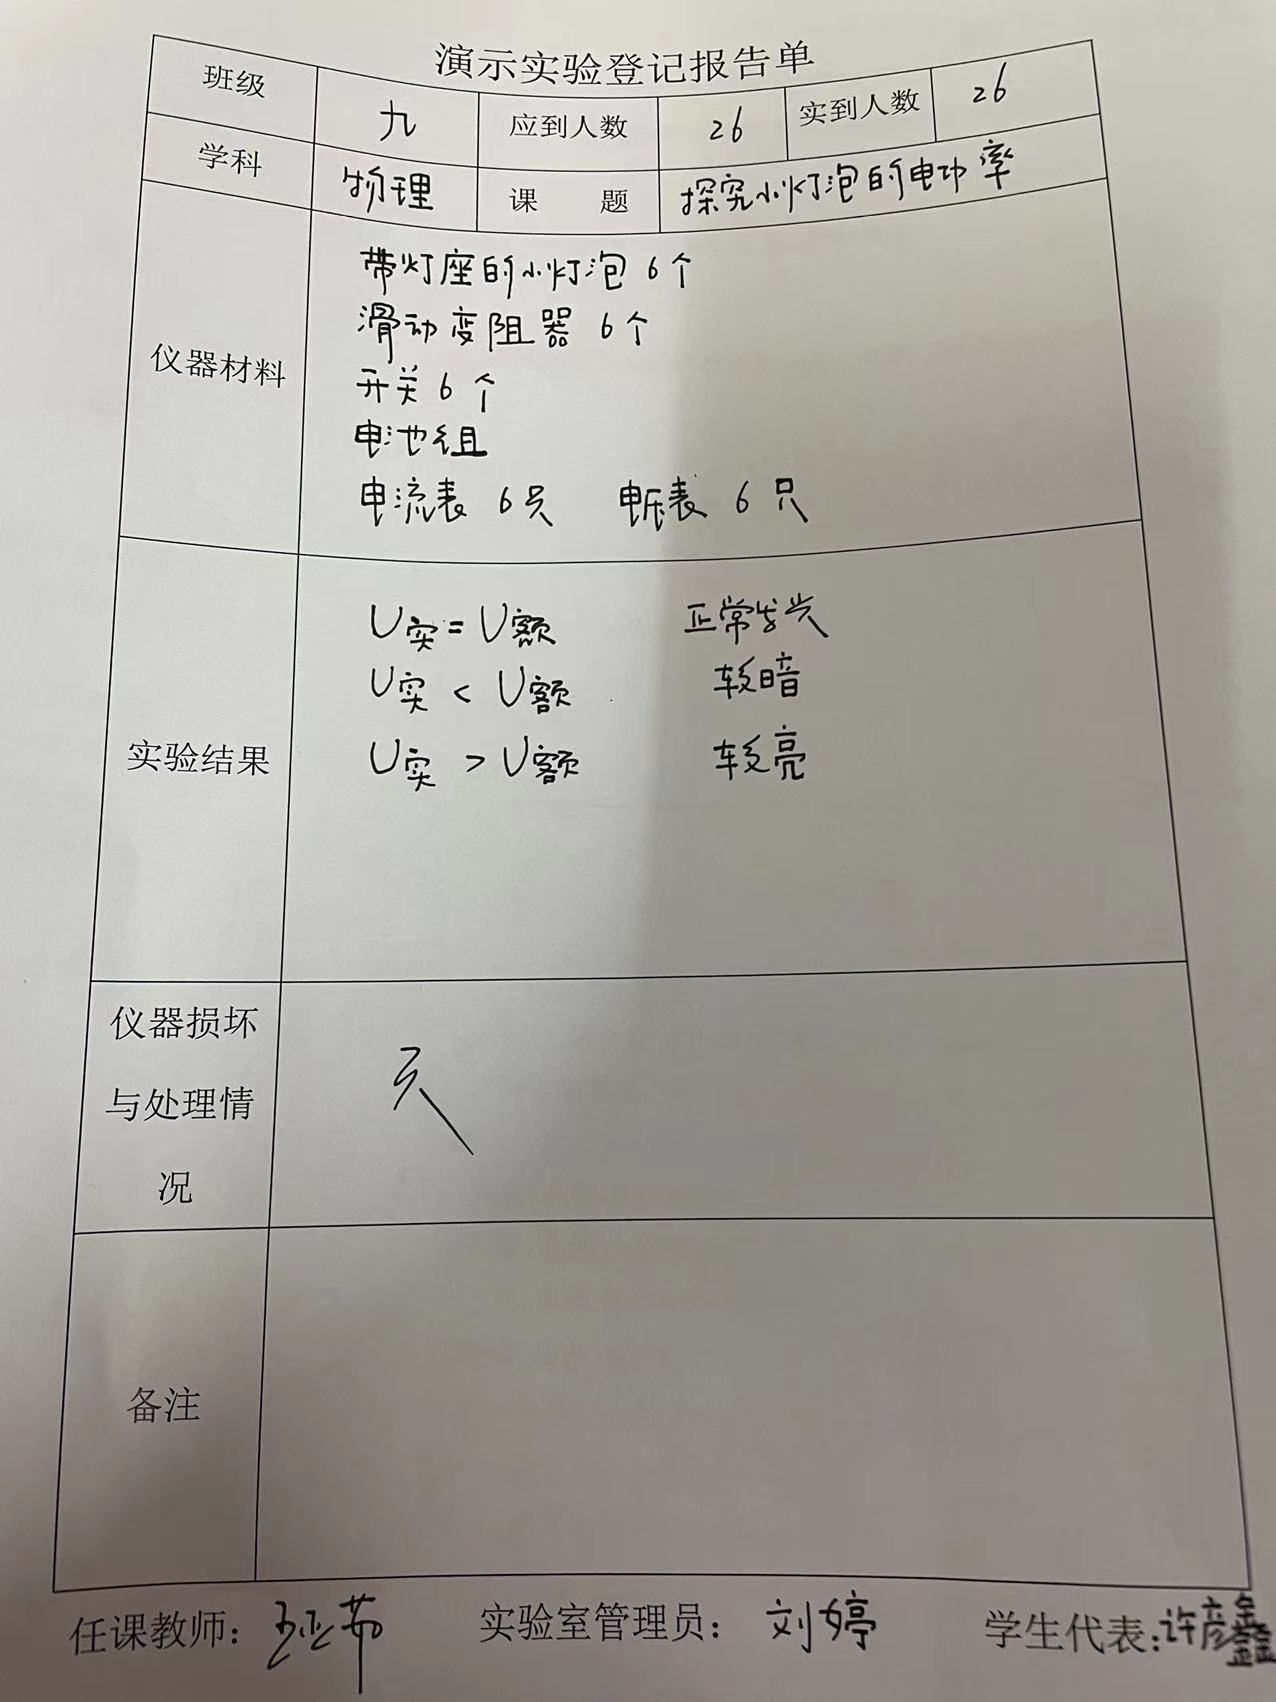 演示实验登记报告单
班级 九 应到人数 26 实到人数 26
学科 物理 课 题 探究小灯泡的电功率
仪器材料
带灯座的小灯泡 6个
滑动变阻器 6个
开关 6个
电池组
电流表 6只 电压表 6只
实验结果
U实 = U额 正常发光
U实 < U额 较暗
U实 > U额 较亮
仪器损坏
与处理情
况
无
备注
任课教师: 实验室管理员: 刘婷 学生代表: 许彦鑫